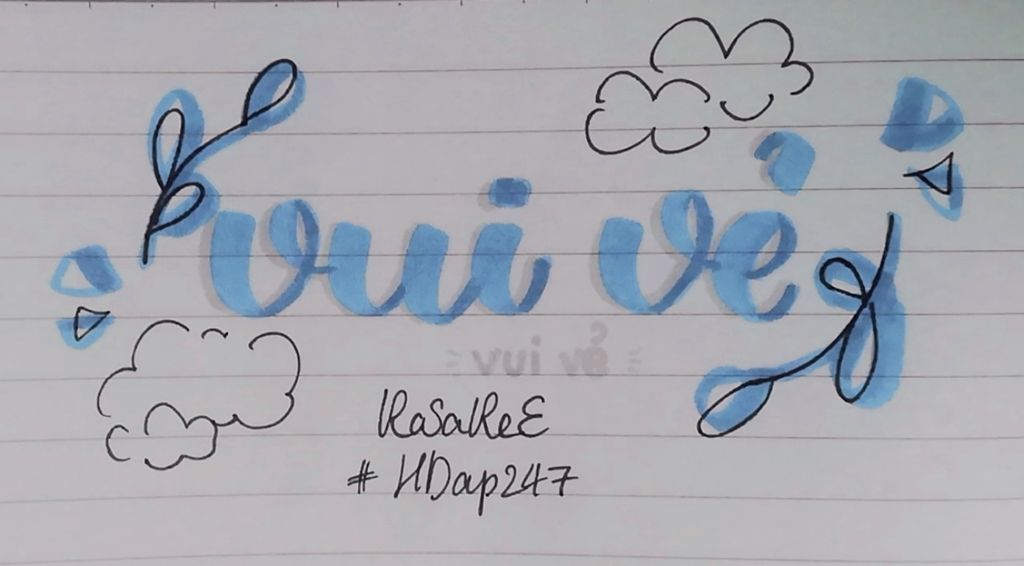 vui vẻ
= vui vẻ =
RoSaReE
# HDap247